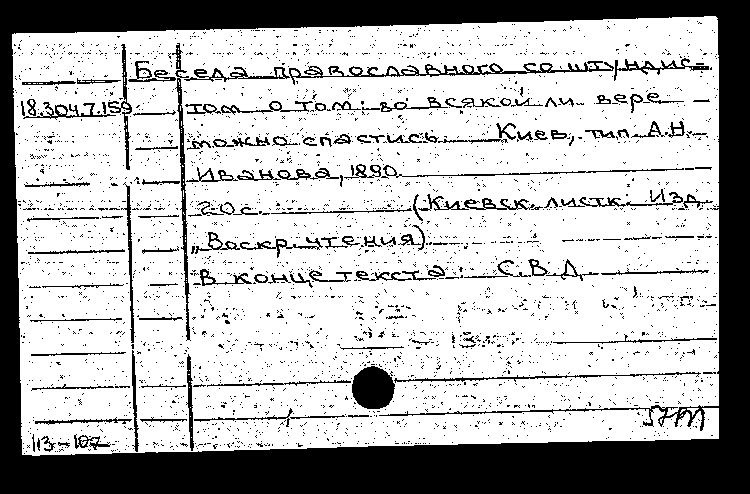 Беседа православного со штундис-
18.304.7.159
том о том: во всякой ли вере
можно спастись. Киев, тип. А.Н.
Иванова, 1890.
20 с. (Киевск. листк. Изд.
„Воскр. чтения)
В конце текста: С.В.Д.
113-107